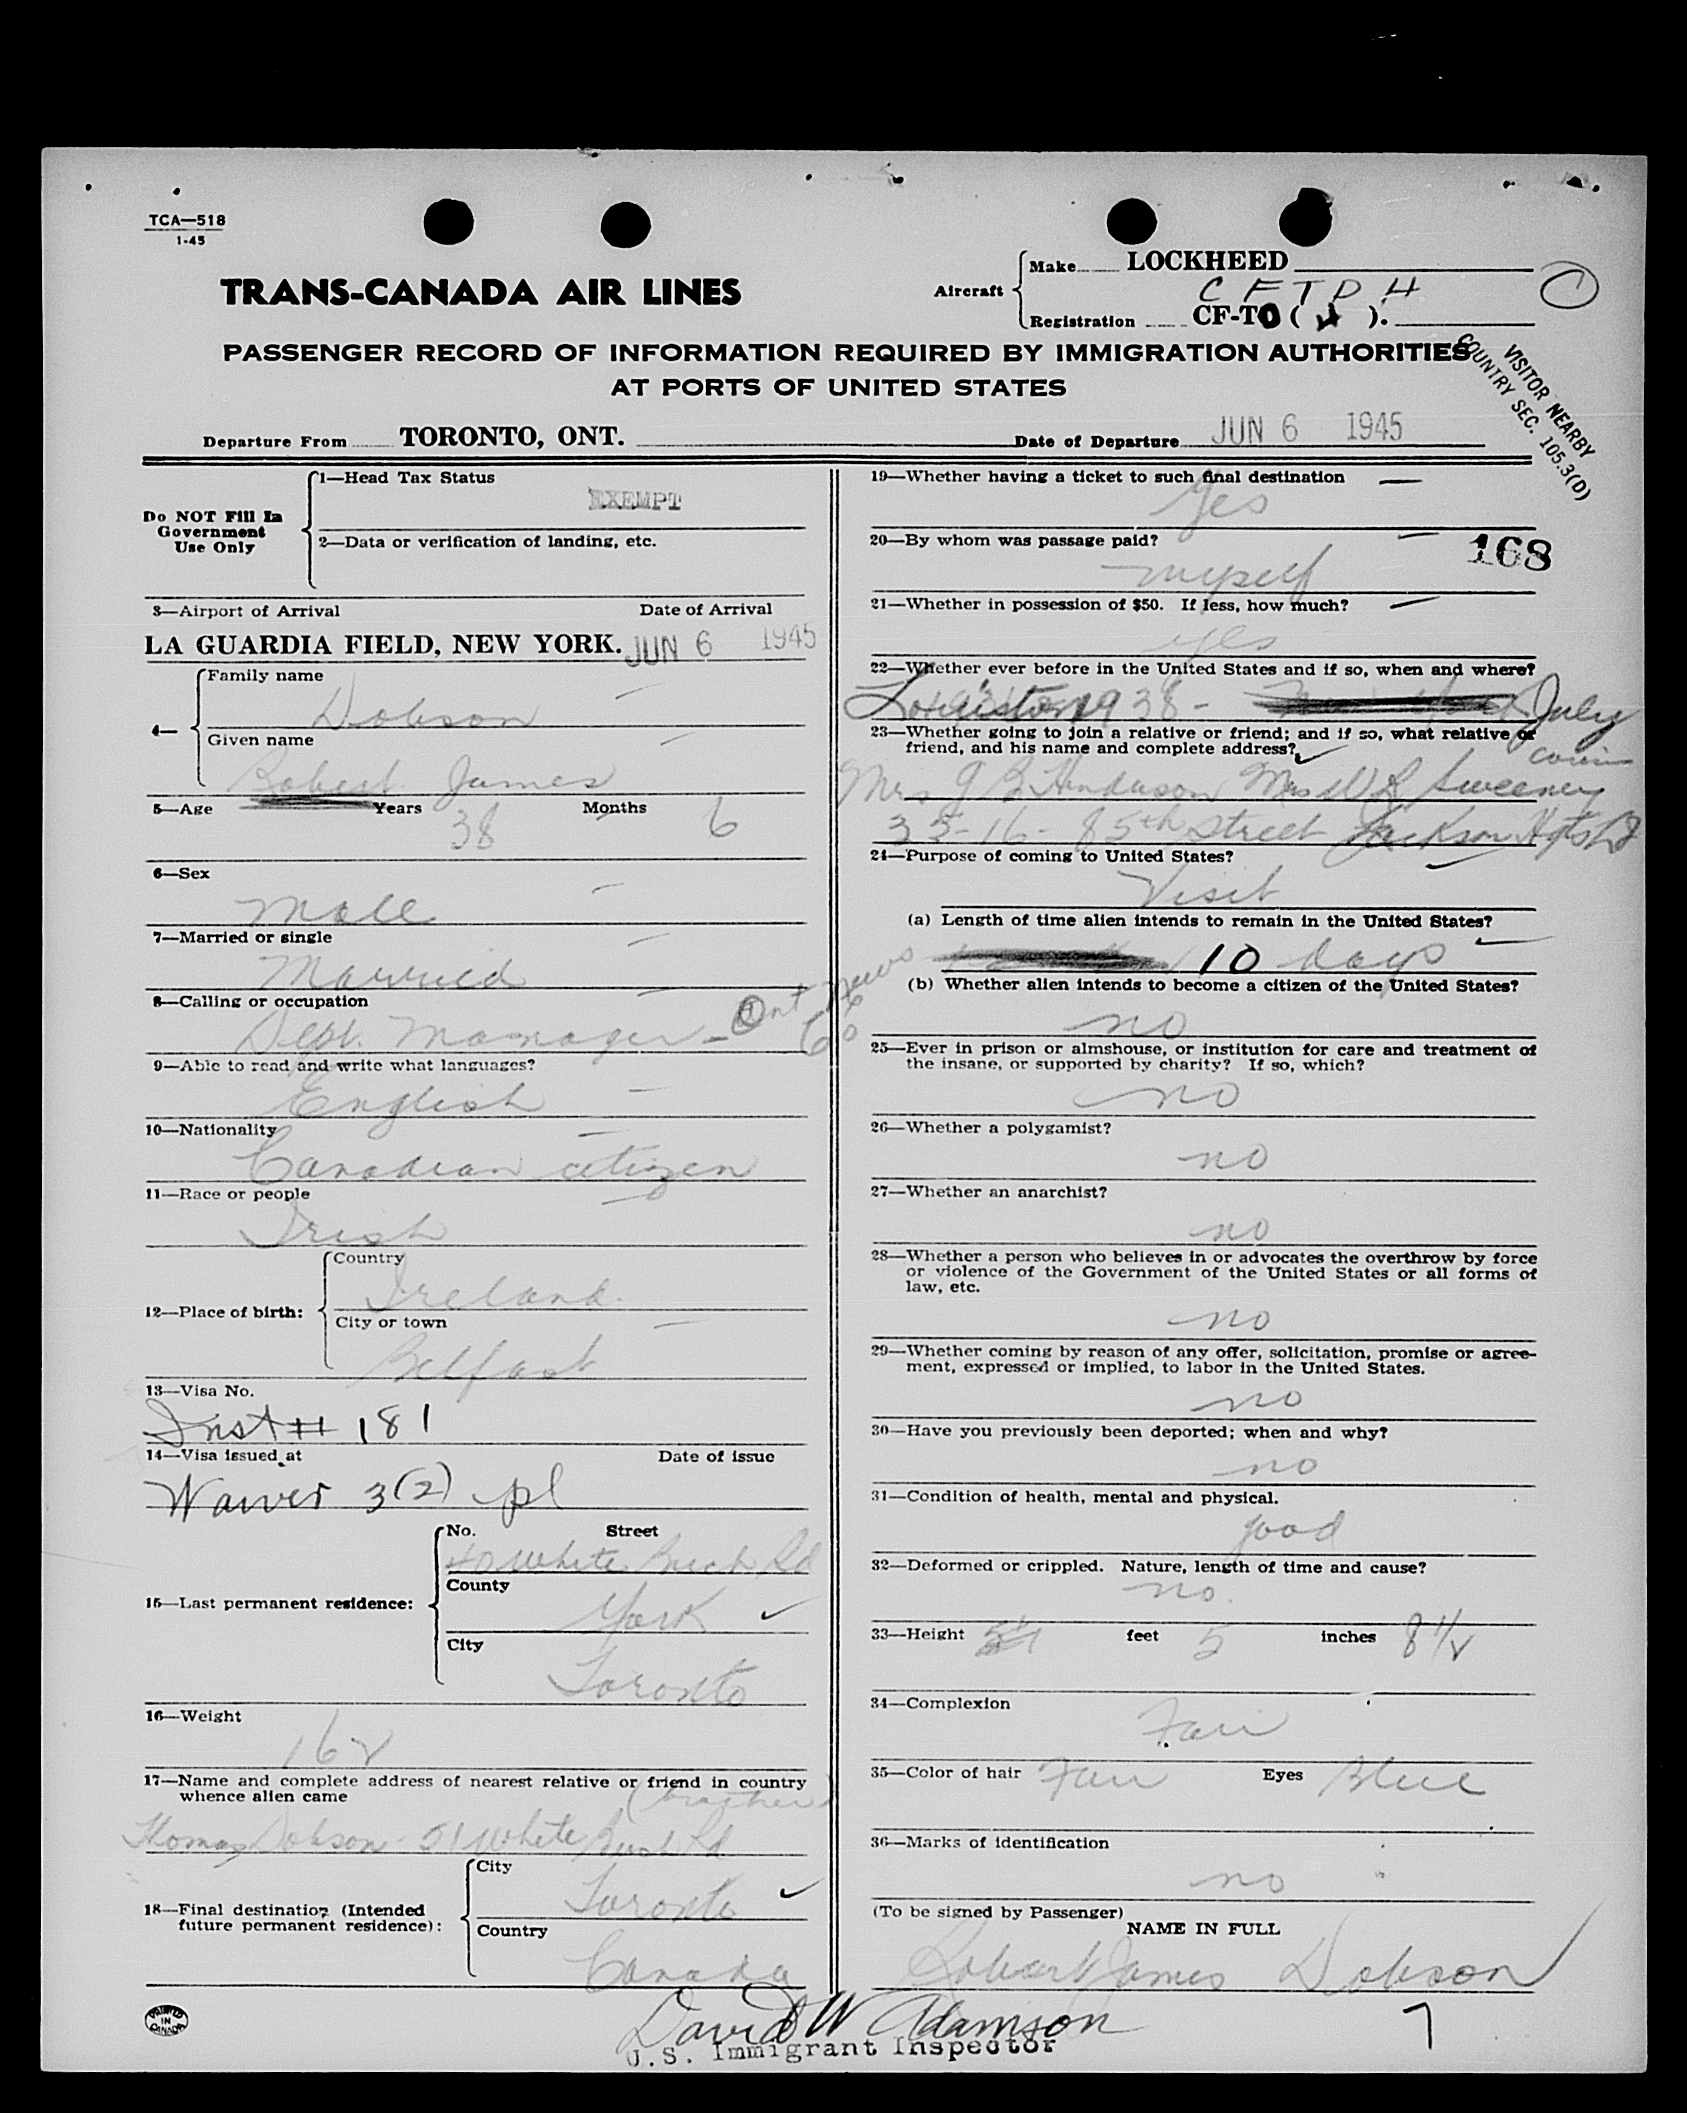 TCA—518
1-45
TRANS-CANADA AIR LINES
Aircraft
Make LOCKHEED
C F T D H
Registration CF-TO ( ).
PASSENGER RECORD OF INFORMATION REQUIRED BY IMMIGRATION AUTHORITIES
AT PORTS OF UNITED STATES
VISITOR NEARBY
COUNTRY SEC. 105.3(D)
Departure From TORONTO, ONT. Date of Departure JUN 6 1945
Do NOT Fill In
Government
Use Only
1—Head Tax Status
EXEMPT
2—Data or verification of landing, etc.
3—Airport of Arrival Date of Arrival
LA GUARDIA FIELD, NEW YORK. JUN 6 1945
4—
Family name
Dobson
Given name
Robert James
5—Age Years 38 Months 6
6—Sex
Male
7—Married or single
Married
8—Calling or occupation
Dept. Manager - Ont News Co
9—Able to read and write what languages?
English
10—Nationality
Canadian citizen
11—Race or people
Irish
12—Place of birth:
Country
Ireland.
City or town
Belfast
13—Visa No.
Inst # 181
14—Visa issued at Date of issue
Waiver 3(2) pl
15—Last permanent residence:
No. Street
40 White Birch Rd
County
York
City
Toronto
16—Weight
162
17—Name and complete address of nearest relative or friend in country
whence alien came
(brother)
Thomas Dobson - 51 White Birch Rd
18—Final destination (Intended
future permanent residence):
City
Toronto
Country
Canada
19—Whether having a ticket to such final destination
Yes
20—By whom was passage paid?
168
myself
21—Whether in possession of $50. If less, how much?
yes
22—Whether ever before in the United States and if so, when and where?
1938 - July
23—Whether going to join a relative or friend; and if so, what relative or
friend, and his name and complete address?
cousin
Mrs G B Henderson Mrs W R Sweeney
35-16- 85th Street Jackson Hgts LI
24—Purpose of coming to United States?
Visit
(a) Length of time alien intends to remain in the United States?
10 days
(b) Whether alien intends to become a citizen of the United States?
no
25—Ever in prison or almshouse, or institution for care and treatment of
the insane, or supported by charity? If so, which?
no
26—Whether a polygamist?
no
27—Whether an anarchist?
no
28—Whether a person who believes in or advocates the overthrow by force
or violence of the Government of the United States or all forms of
law, etc.
no
29—Whether coming by reason of any offer, solicitation, promise or agree-
ment, expressed or implied, to labor in the United States.
no
30—Have you previously been deported; when and why?
no
31—Condition of health, mental and physical.
good
32—Deformed or crippled. Nature, length of time and cause?
no.
33—Height feet 5 inches 8 1/2
34—Complexion
Fair
35—Color of hair Fair Eyes Blue
36—Marks of identification
no
(To be signed by Passenger)
NAME IN FULL
Robert James Dobson
PRINTED
IN
CANADA
David W Adamson
U.S. Immigrant Inspector
7